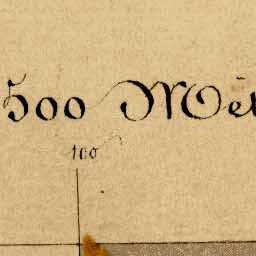 500 Met
100